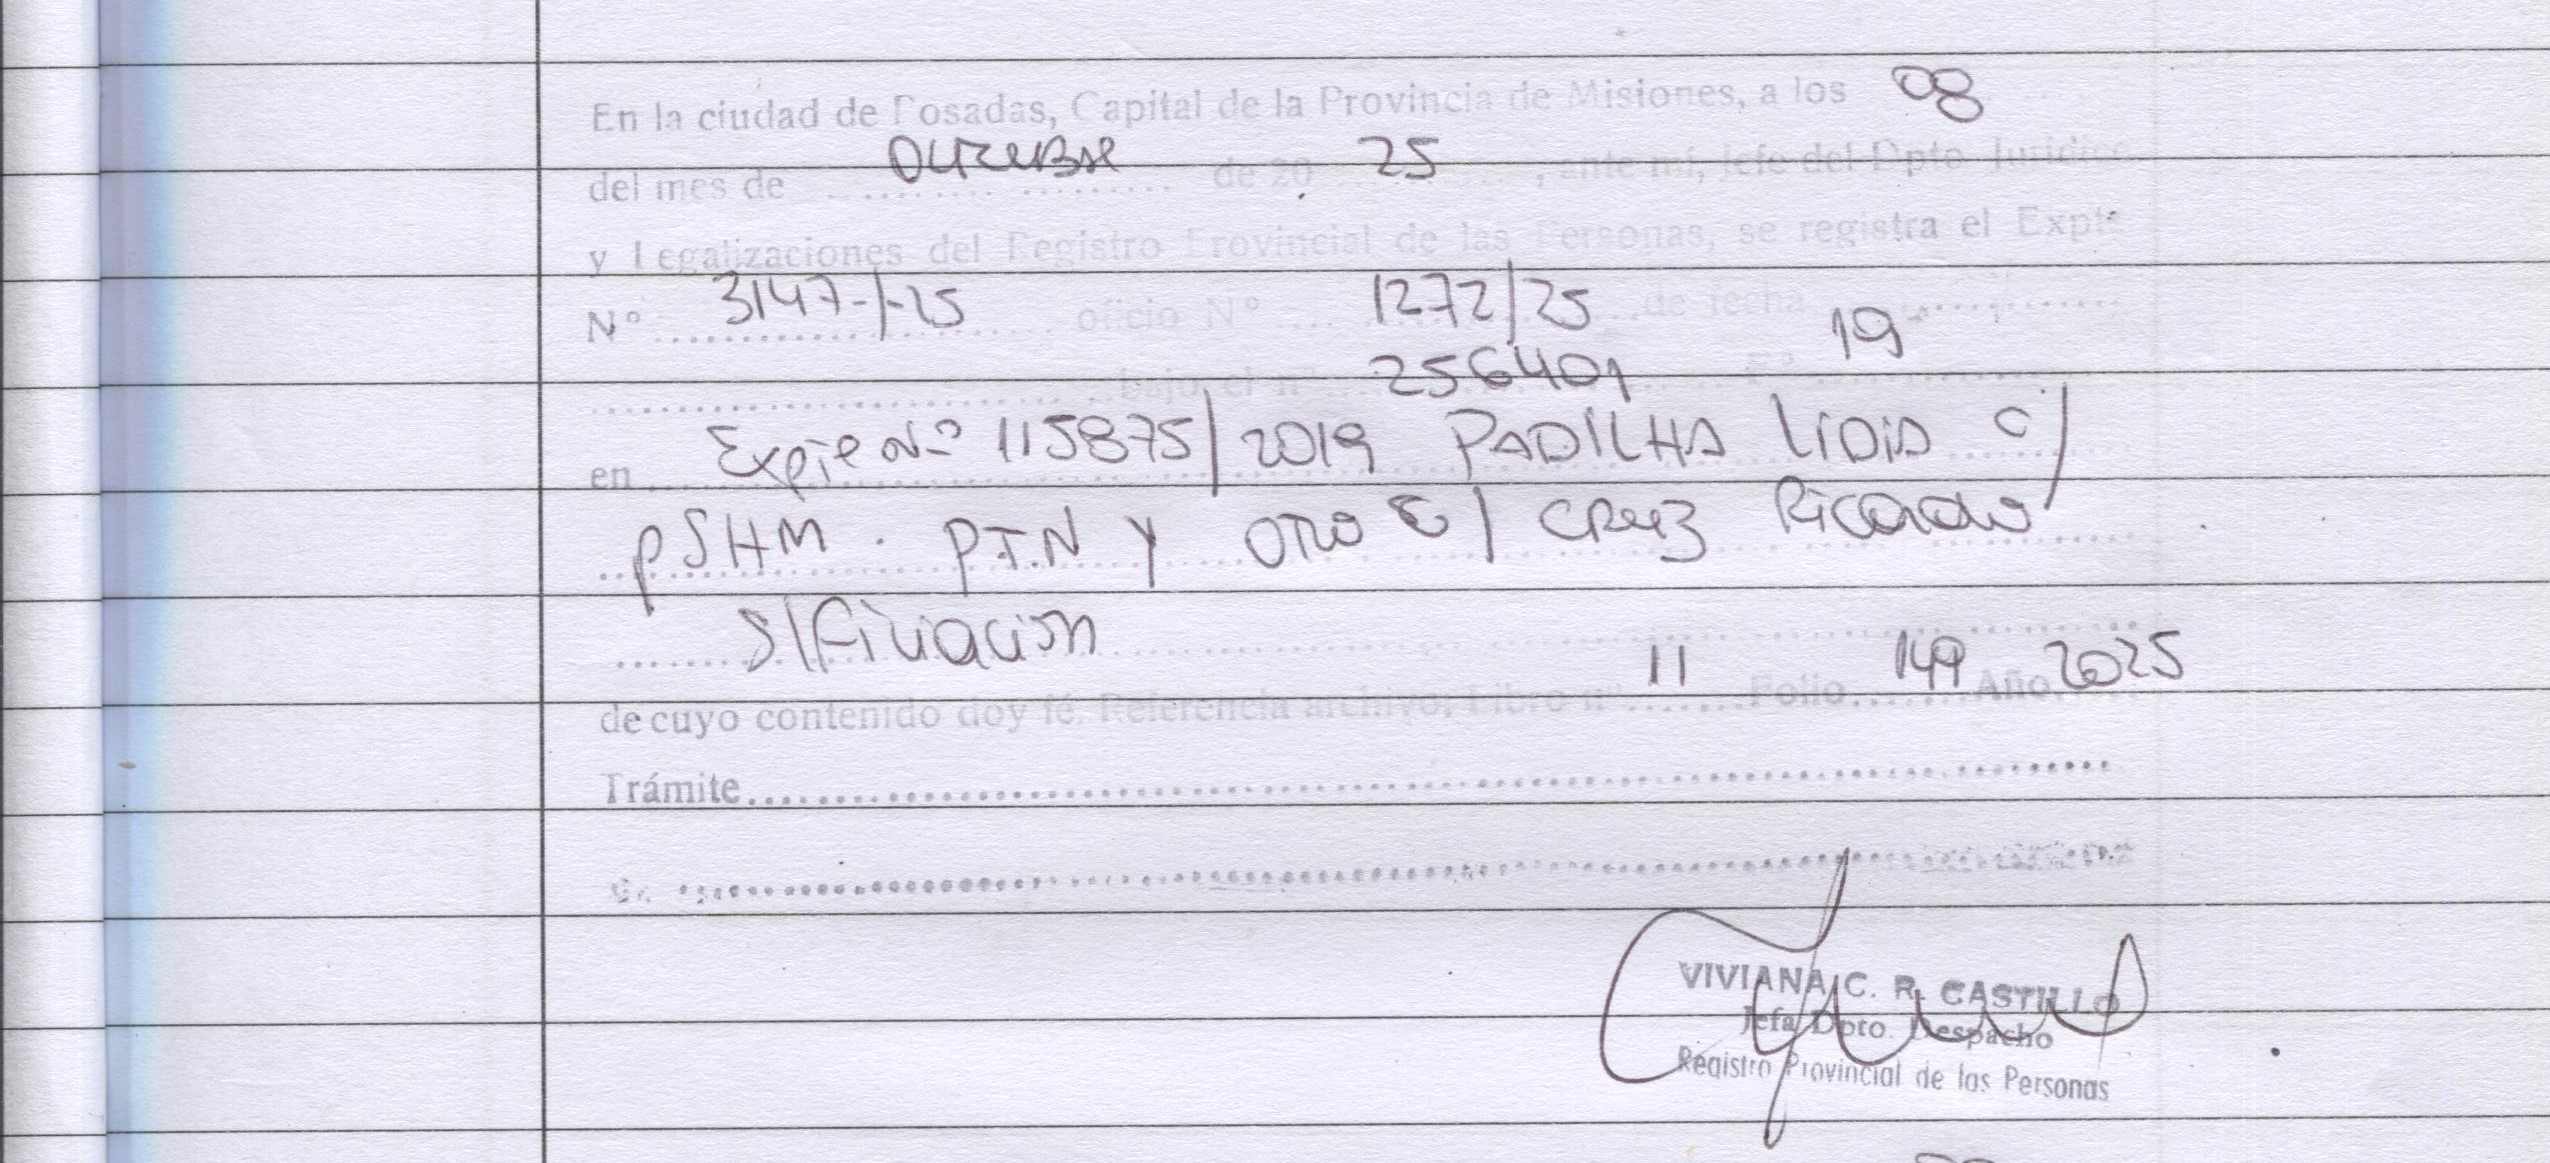 En la ciudad de Posadas, Capital de la Provincia de Misiones, a los 08
del mes de octubre de 20 25, ante mí, jefe del Dpto. Jurídico
y Legalizaciones del Registro Provincial de las Personas, se registra el Expte
N° 3147-/-25 oficio N° 1272/25 de fecha
bajo el n° 256401 F° 19
en Expte N° 115875/2019 PADILHA LIDIA C/
PSHM. PTN Y OTRO C/ CRUZ Ricardo
S/Filiación
de cuyo contenido doy fé. Referencia archivo; Libro n° 11 Folio 149 Año 2025
Trámite
VIVIANA C. R. CASTILLO
Jefa Dpto. Despacho
Registro Provincial de las Personas